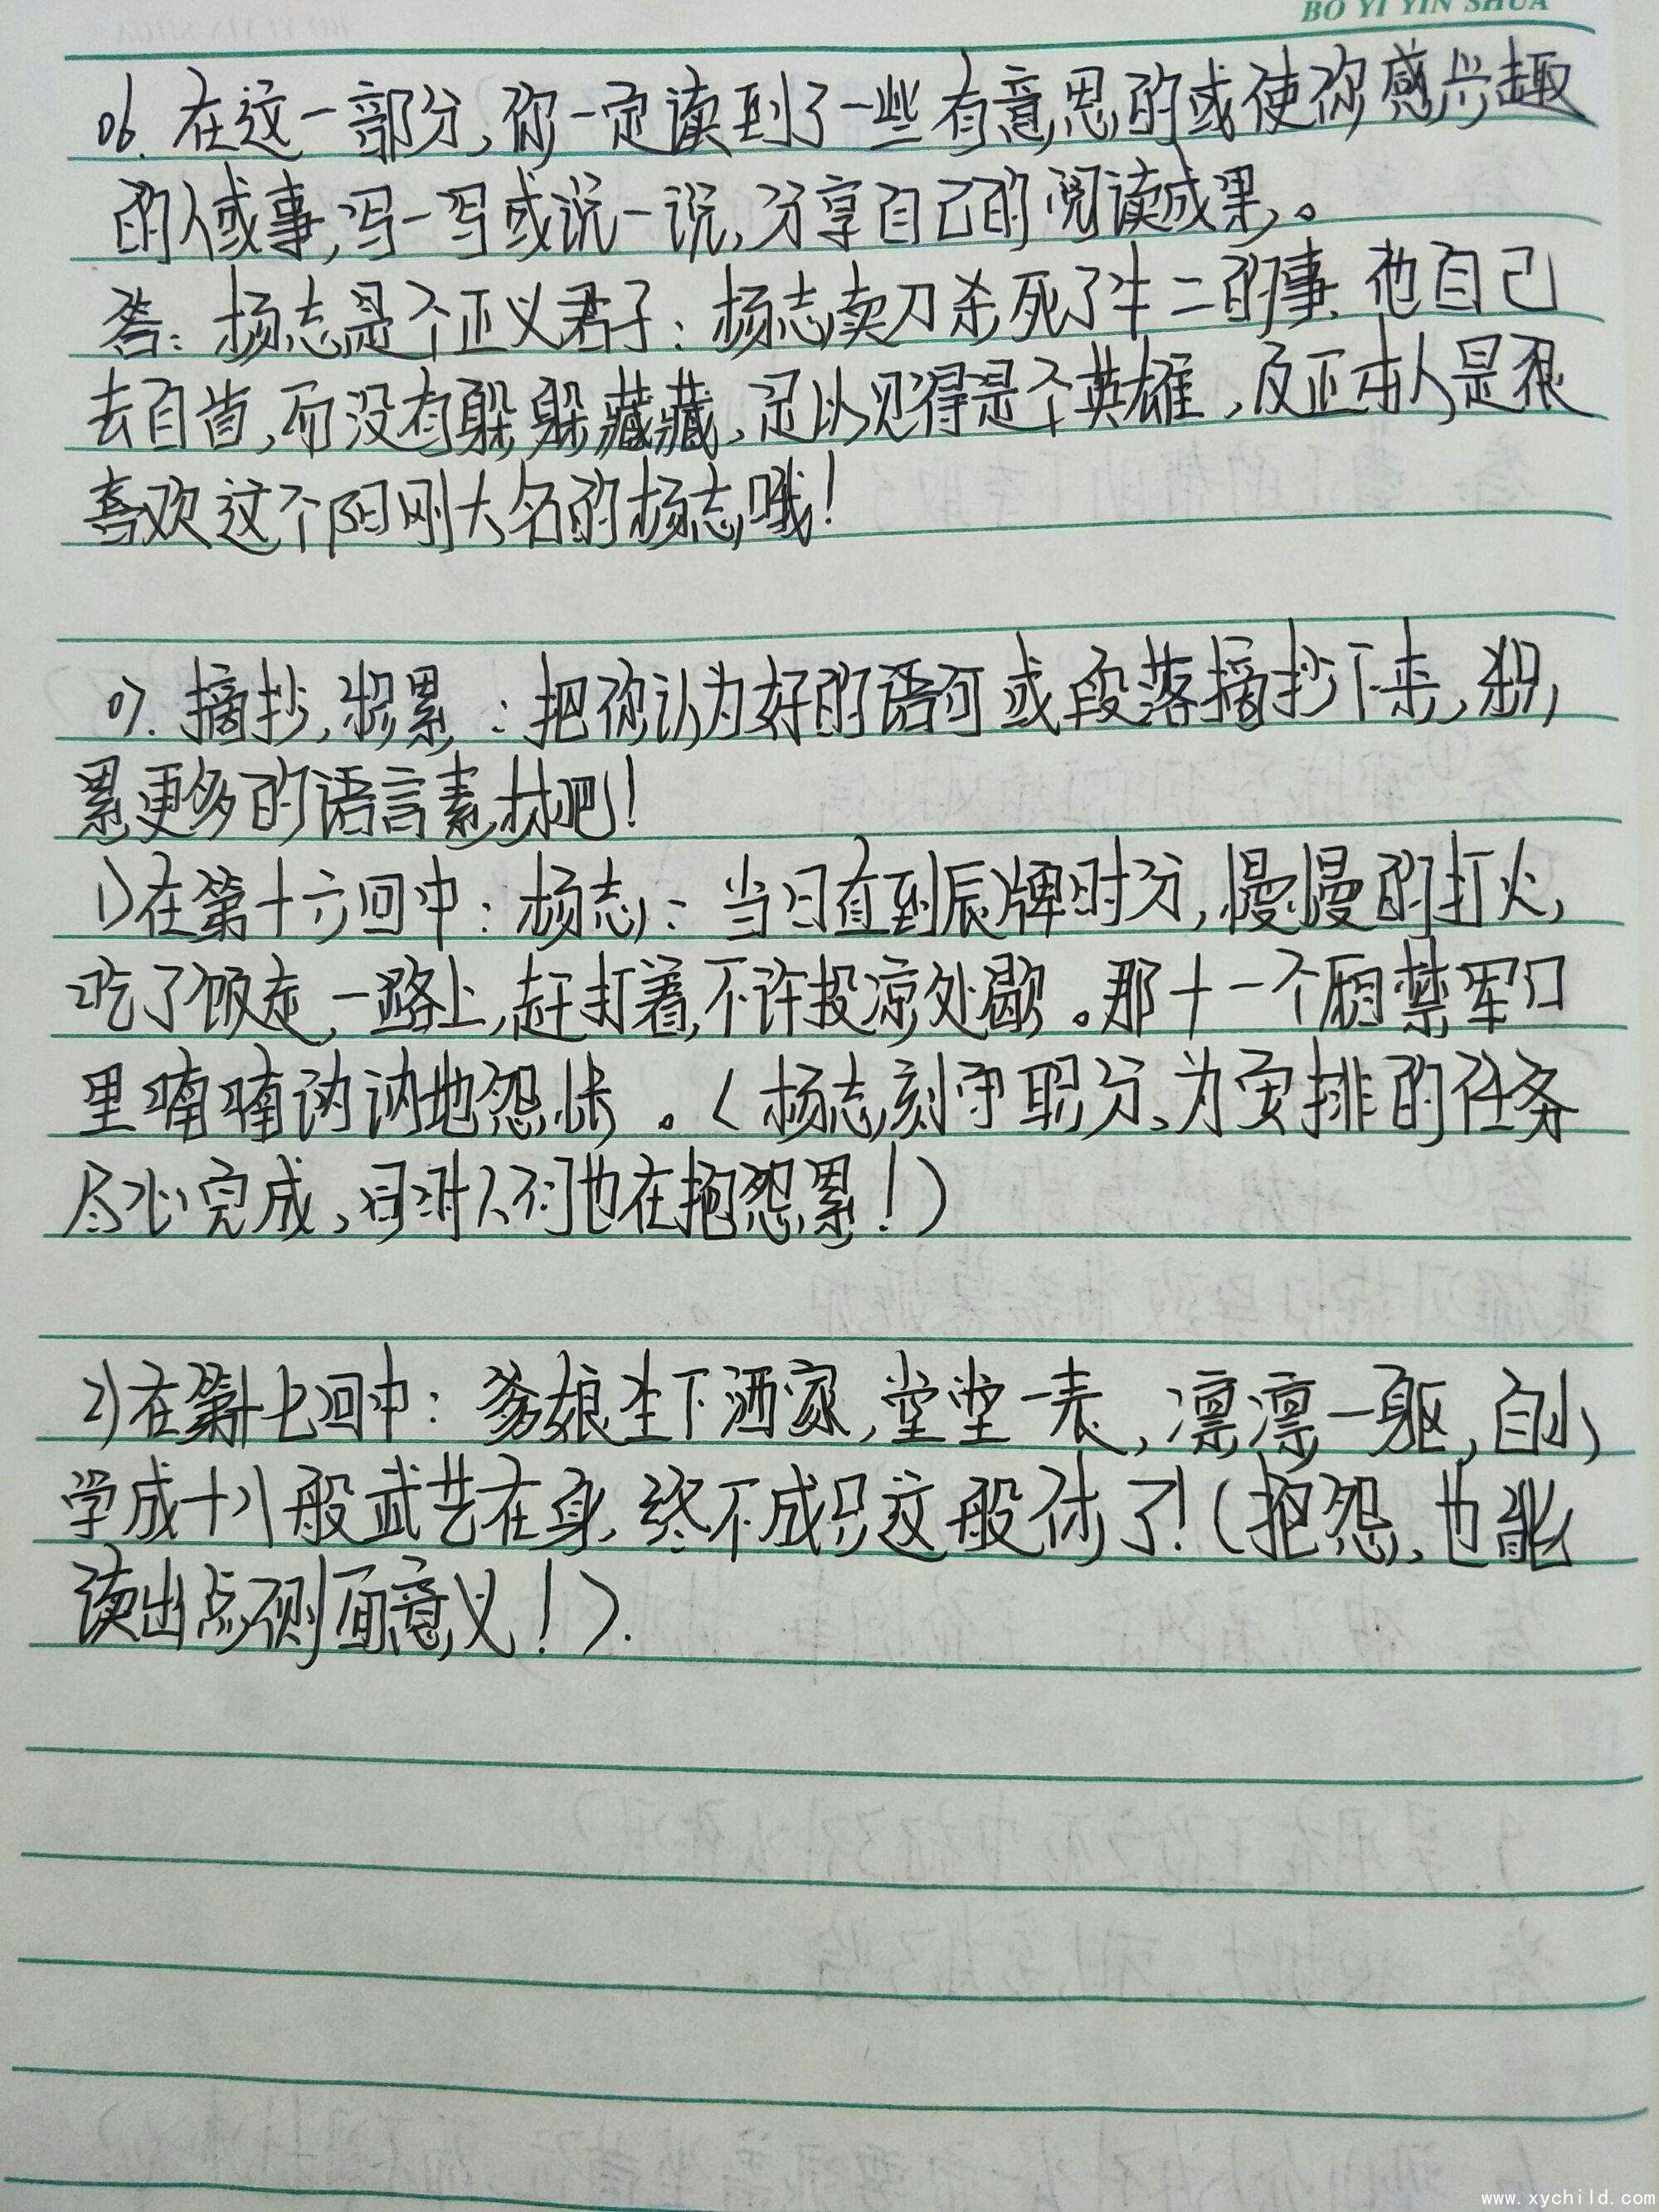 BO YI YIN SHUA
06. 在这一部分,你一定读到了一些有意思的或使你感兴趣
的人或事,写一写或说一说,分享自己的阅读成果。
答:杨志是个正义君子:杨志卖刀杀死了牛二的事,他自己
去自首,而没有躲躲藏藏,足以见得是个英雄,反正本人是很
喜欢这个阳刚大名的杨志哦!
07. 摘抄,积累:把你认为好的语句或段落摘抄下来,积
累更多的语言素材吧!
1)在第十六回中:杨志:当日直到辰牌时分,慢慢的打火,
吃了饭走,一路上,赶打着,不许投凉处歇。那十一个厢禁军口
里喃喃讷讷地怨怅。(杨志刻守职分,为安排的任务
尽心完成,同时人们也在抱怨累!)
2)在第十七回中:爹娘生下洒家,堂堂一表,凛凛一躯,自小
学成十八般武艺在身,终不成只这般休了!(抱怨,也能
读出点侧面意义!).
www.xychild.com